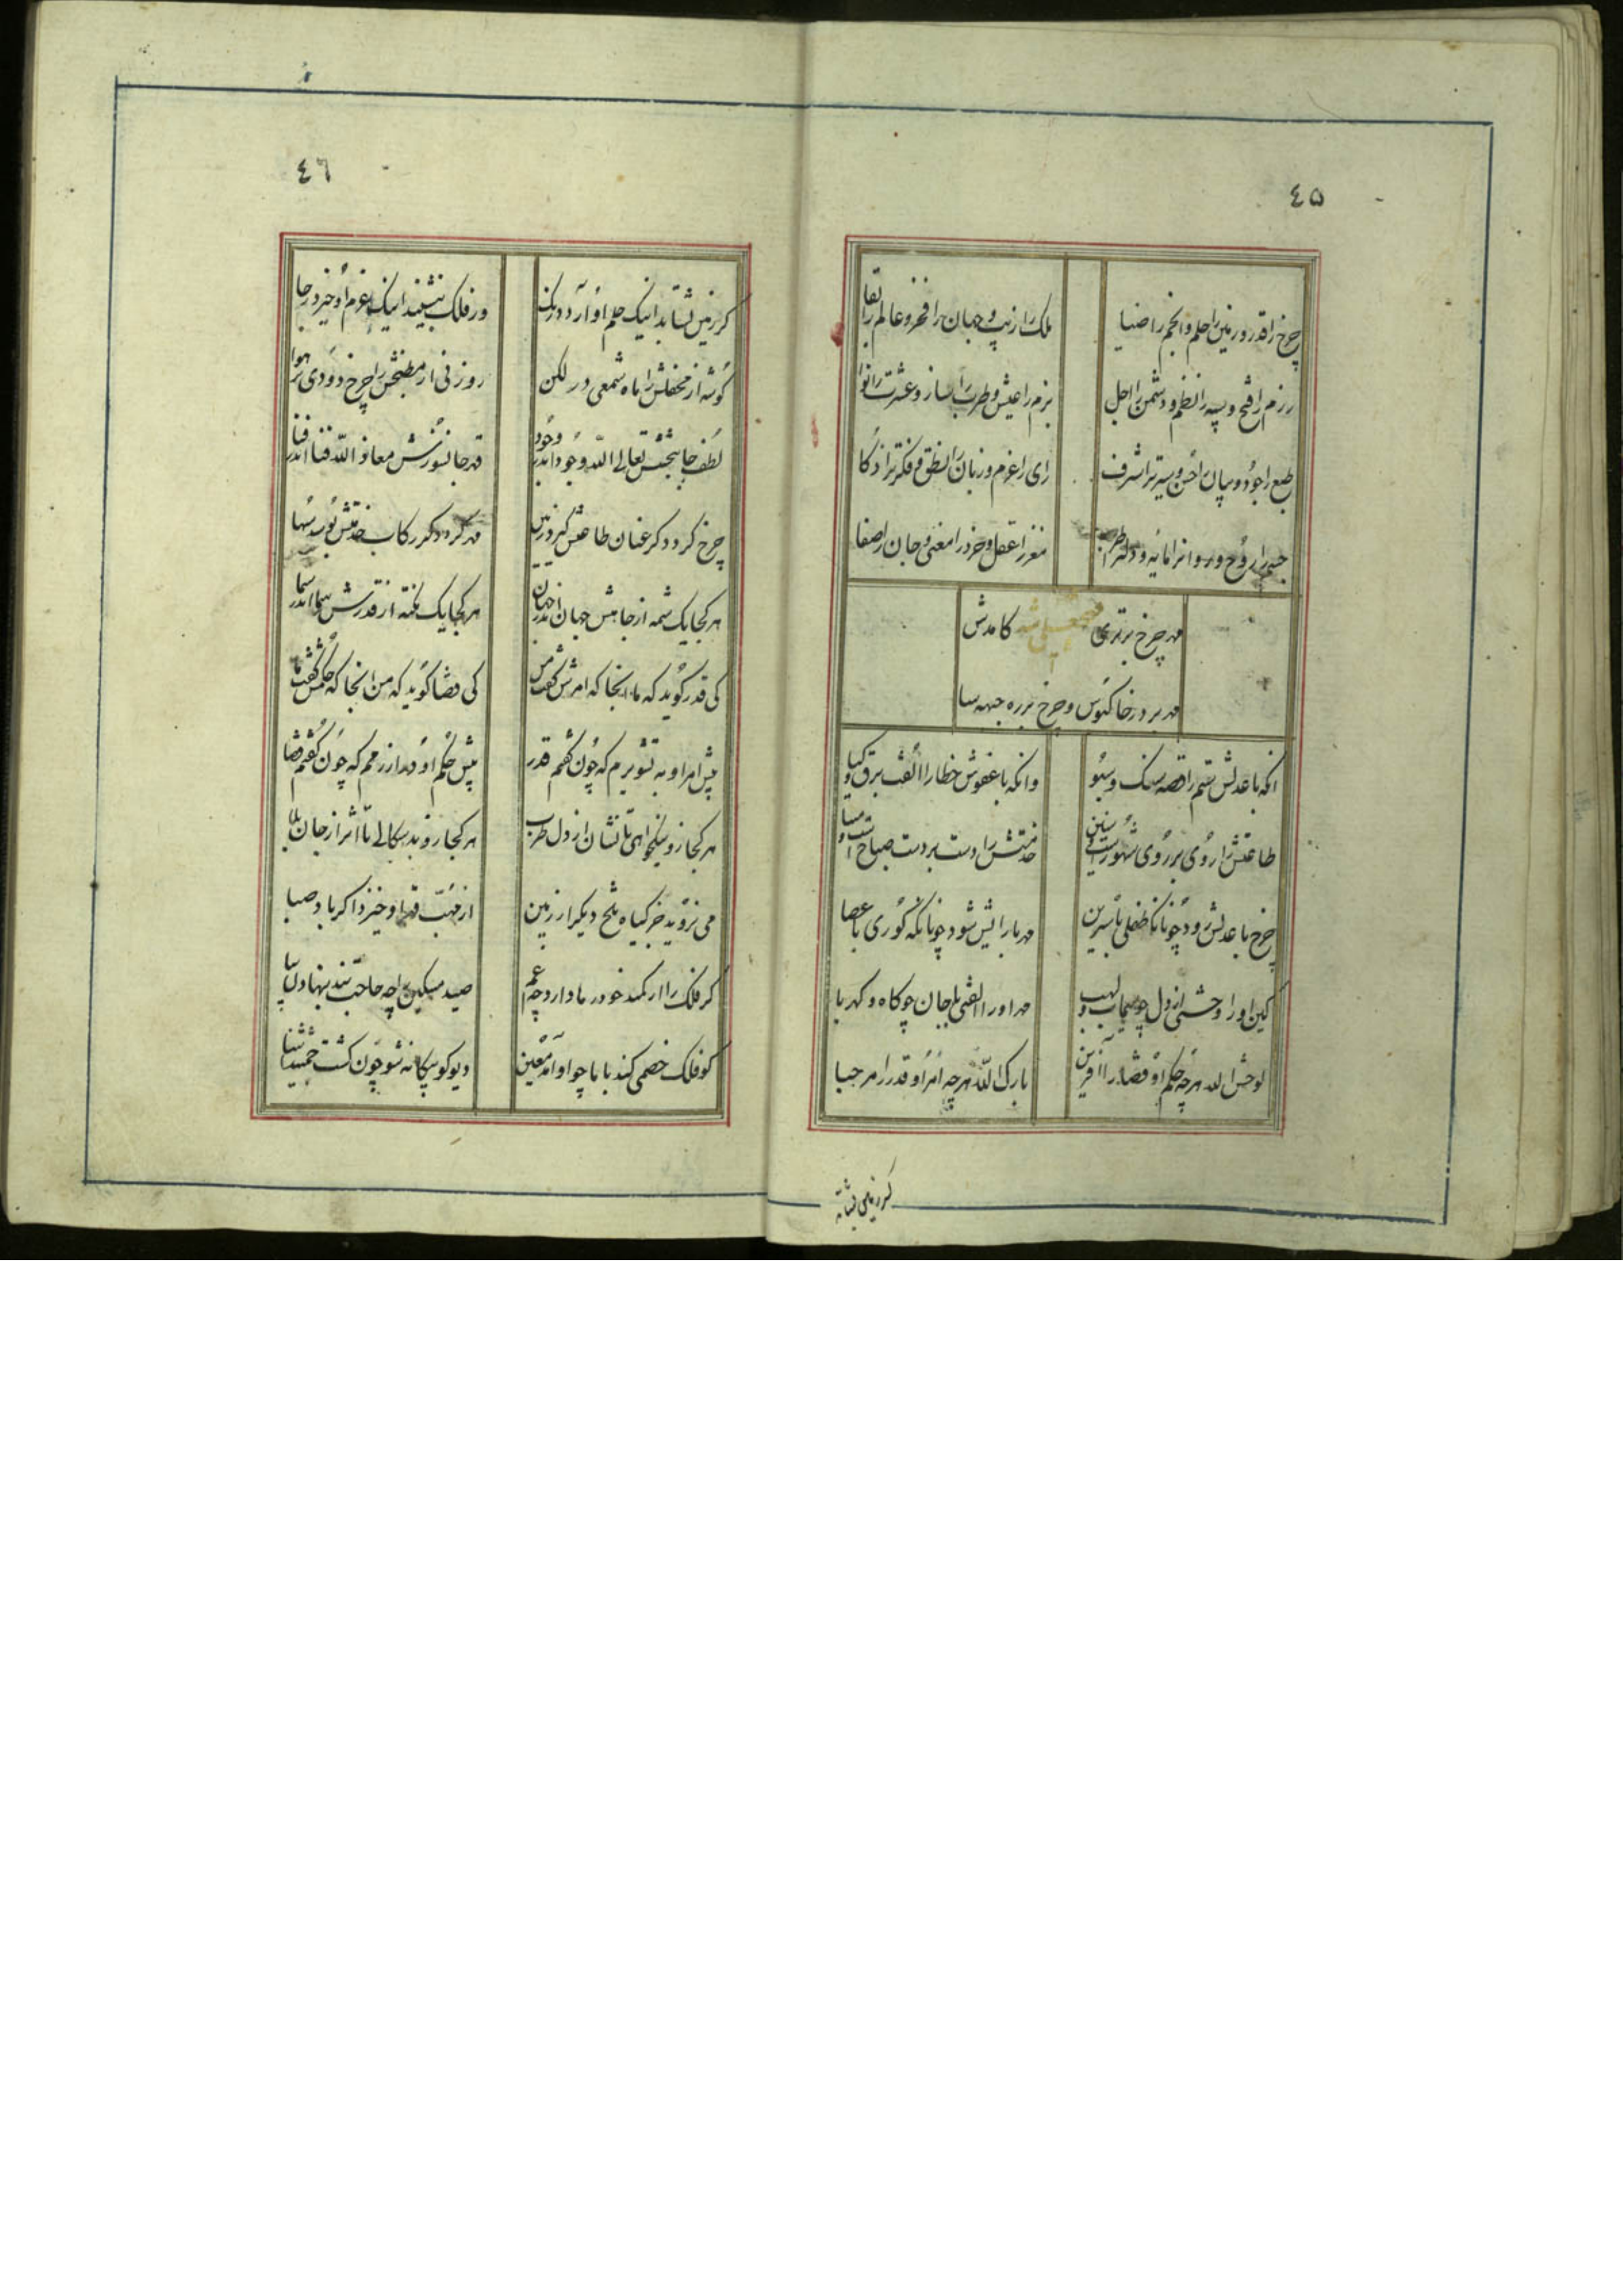 ٤٥
چرخ را قدر و زمین را حلم و انجم را ضیا
ملک را زیب و جهان را فخر و عالم را بقا
رزم را فتح و سپه را نظم و دشمن را اجل
بزم را عیش و طرب را ساز و عشرت را نوا
طبع را جود و بیان را حسن و سیرت را شرف
رای را عزم و زبان را نطق و فکرت را ذکا
جسم را روح و روانرا مایه و دل را طرب
مغز را عقل و خرد را معنی و جان را صفا
مهر چرخ برتری فتحعلی شه کامدش
مهر بر در خاکبوس و چرخ بر ره جبهه سا
انکه با عدلش ستم را قصه سنک و سبو
وانکه با عفوش خطا را الفت برق و کیا
طاعتش را روی بر روی شهور است و سنین
خدمتش را دست بر دست صباح است و مسا
چرخ با عدلش رود چونانکه طفلی با سرین
مهر با رایش شود چونانکه کوری با عصا
کین او را وحشتی از دل چو سیماب و لهب
مهر او را الفتی با جان چو کاه و کهربا
لوحش الله هر چه حکم او قضا را آفرین
بارک الله هر چه امر او قدر را مرحبا
کر زمین نشتابد
٤٦
کر زمین نشتابد اینک حلم او آرد درنک
ور فلک ننشیند اینک عزم او خیزد ز جا
کوشه از محفلش را ماه شمعی در لکن
روزنی از مطبخش را چرخ دودی بر هوا
لطف جانبخشش تعالی الله وجود اندر وجود
قهر جانسوزش معاذ الله فنا اندر فنا
چرخ کردد کر عنان طاعتش کیرد زمین
مهر کردد کر رکاب خدمتش بوسد سها
هر کجا یک شمه از جاهش جهان اندر جهان
هر کجا یک نکته از قدرش سما اندر سما
کی قدر کوید که ما انجا که امرش کفت من
کی قضا کوید که من انجا که حکمش کفت ما
پیش امر او به تشویرم که چون کفتم قدر
پیش حکم او در ازرمم که چون کفتم قضا
هر کجا زو نیکخواهی تا نشان از دل طرب
هر کجا زو بدسکالی تا اثر از جان بلا
می نروید جز کیاه تلخ دیکر از زمین
از مهب قهر او خیزد اکر باد صبا
کر فلک را از کمند خود رها دارد چه غم
صید مسکین را چه حاجت بند بنهادن بپا
کو فلک خصمی کند با ما چو او آمد معین
دیو کو بیکانه شو چون کشت جمشید آشنا